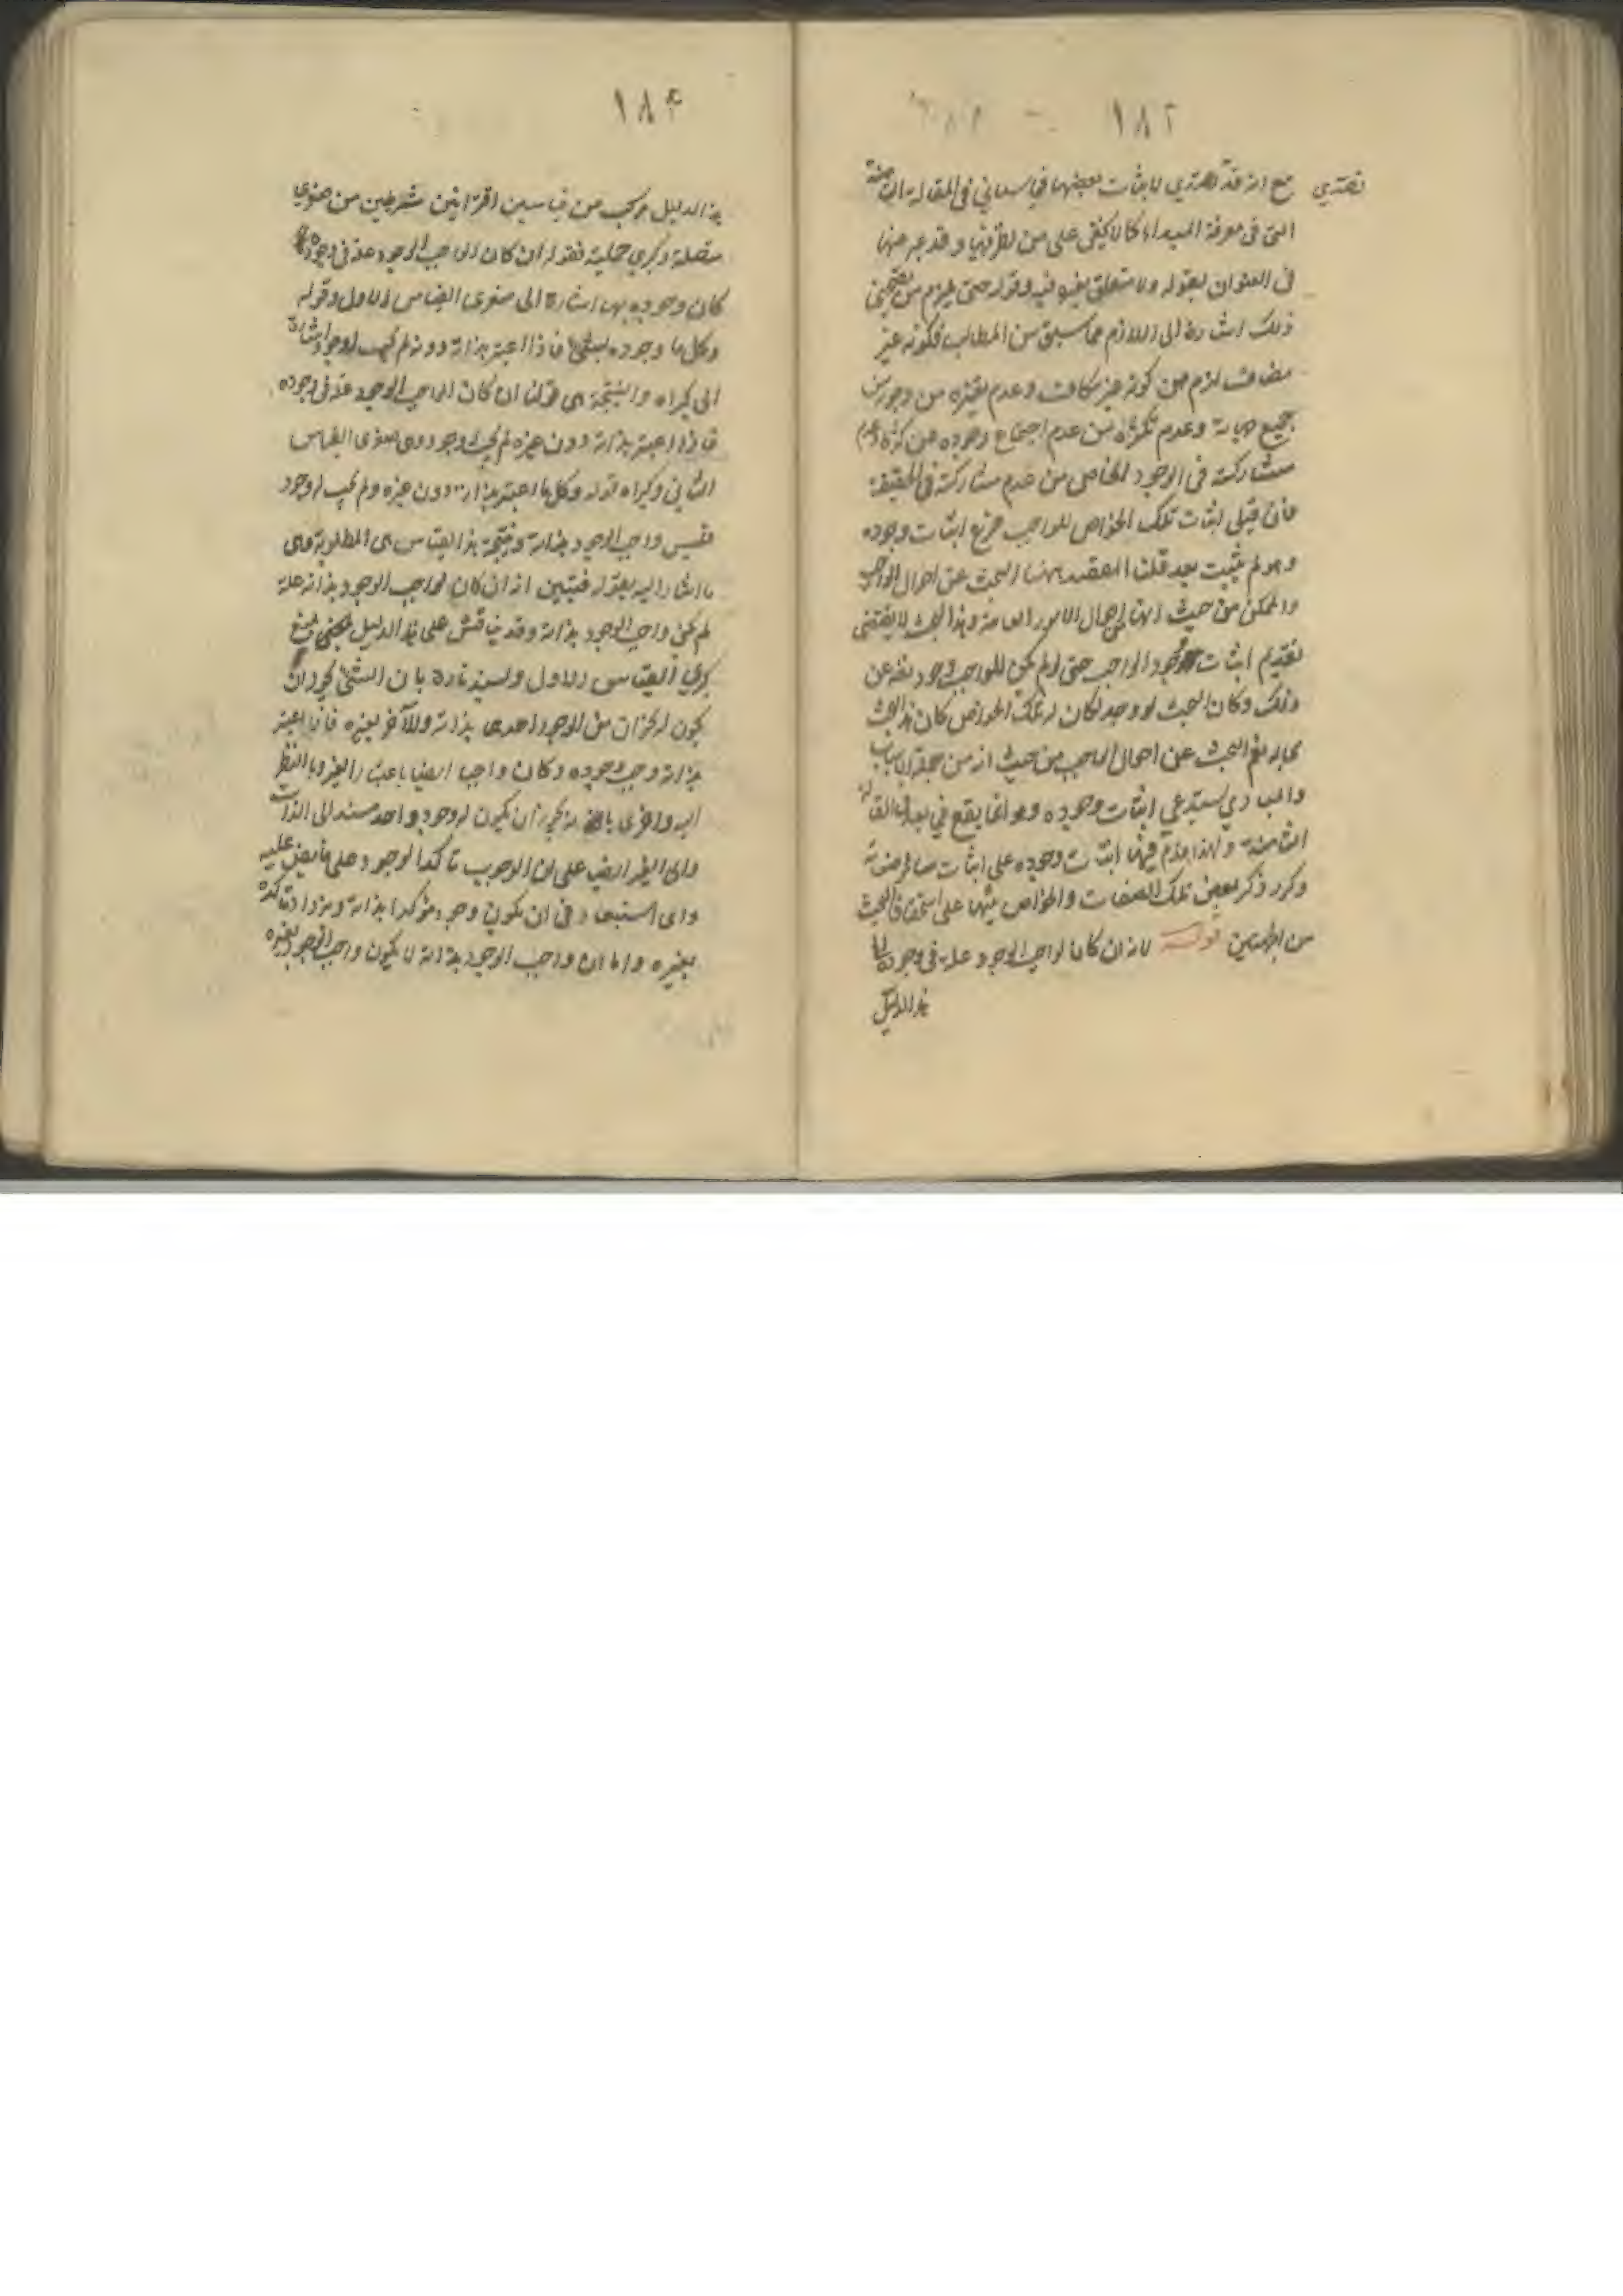 ١٨٢
تصدي مع انه قد تصدي لاثبات بعضها فيما سيأتي في المقالة الثامنة
التي في معرفة المبدأ كما لا يخفى على من نظر فيها وقد عبر عنها
في العنوان بقوله ولا متعلق بغيره فيه وقوله حتى يلزم من تصحيح
ذلك اشارة الى اللازم مما سبق من المطالب فكونه غير
مضاف لزم من كونه غير مكاف وعدم تغيره من وجوب
جميع جهاته وعدم تكثره من عدم اجتماع وجوده عن كثرة وعدم
مشاركته في الوجود الخاص من عدم مشاركته في الحقيقة
فان قيل اثبات تلك الخواص للواجب فرع اثبات وجوده
وهو لم يثبت بعد قلنا المقصد ههنا البحث عن احوال الواجب
والممكن من حيث انها احوال الامور العامة وهذا البحث لا يقتضي
تقديم اثبات وجود الواجب حتى لو لم يكن للواجب وجود تعالى عن
ذلك وكان البحث لو وجد لكان له تلك الخواص كان هذا البحث
بحاله نعم البحث عن احوال الواجب من حيث انه من جملة الاسباب
والمبادي يستدعي اثبات وجوده وهو انما يقع في بعد المقالة
الثامنة ولهذا قدم فيها اثبات وجوده على اثبات سائر صفاته
وكرر ذكر بعض تلك الصفات والخواص تنبيها على استحقاق البحث
من الجهتين قوله لانه ان كان لواجب الوجود علة في وجوده
هذا الدليل
١٨٣
هذا الدليل مركب من قياسين اقترانيين شرطيين من صغرى
متصلة وكبرى حملية فقوله ان كان لواجب الوجود علة في وجوده
كان وجوده بها اشارة الى صغرى القياس الاول وقوله
وكل ما وجوده بشيء فاذا اعتبر بذاته دونه لم يجب له وجود اشارة
الى كبراه والنتيجة هي قولنا ان كان لواجب الوجود علة في وجوده
فاذا اعتبر بذاته دون غيره لم يجب له وجود وهي صغرى القياس
الثاني وكبراه قوله وكل ما اعتبر بذاته دون غيره ولم يجب له وجود
فليس واجب الوجود بذاته ونتيجة هذا القياس هي المطلوبة وهي
ما اشار اليه بقوله فتبين انه ان كان لواجب الوجود بذاته علة
لم يكن واجب الوجود بذاته وقد يناقش على هذا الدليل بمنع
كبرى القياس الاول ويسند تارة بان الشيء يجوز ان
يكون له نحوان من الوجود احدهما بذاته والآخر بغيره فاذا اعتبر
بذاته وجب وجوده وكان واجبا ايضا باعتبار الغير وبالنظر
اليه واخرى بانه يجوز ان يكون له وجود واحد مستند الى الذات
والى الغير ايضا على ان الوجوب تأكد الوجود على ما نص عليه
واي استبعاد في ان يكون وجود مؤكدا بذاته ويزداد تأكده
بغيره واما ان واجب الوجود بذاته لا يكون واجب الوجود بغيره